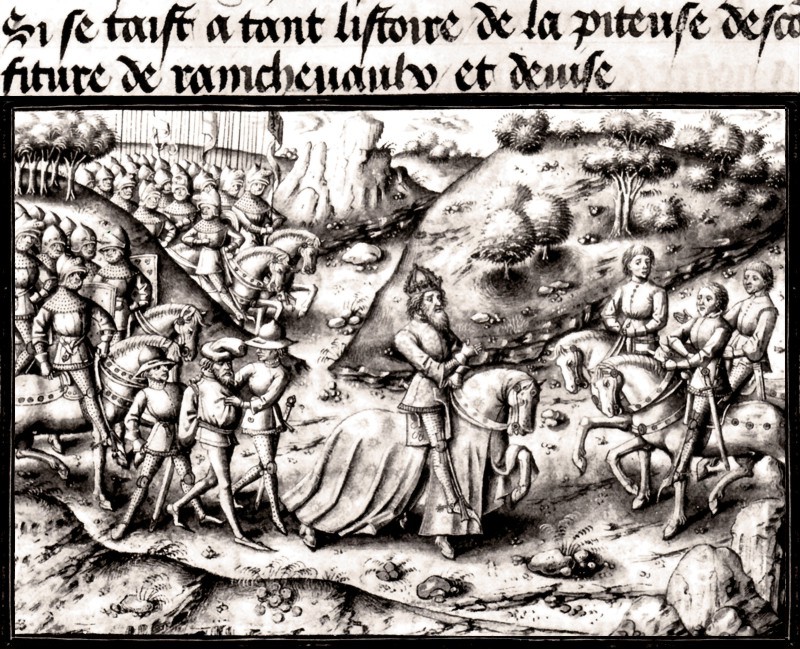 Si se taist a tant listoire de la piteuse desco
fiture de rainchevaulx et devise